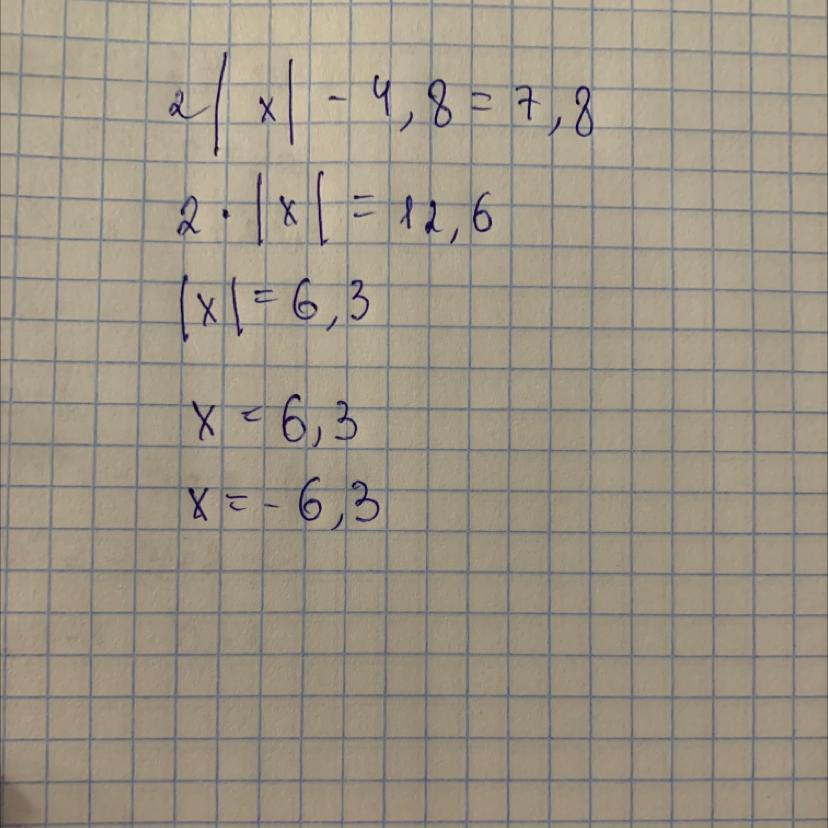 2|x| - 4,8 = 7,8
2 · |x| = 12,6
|x| = 6,3
x = 6,3
x = - 6,3